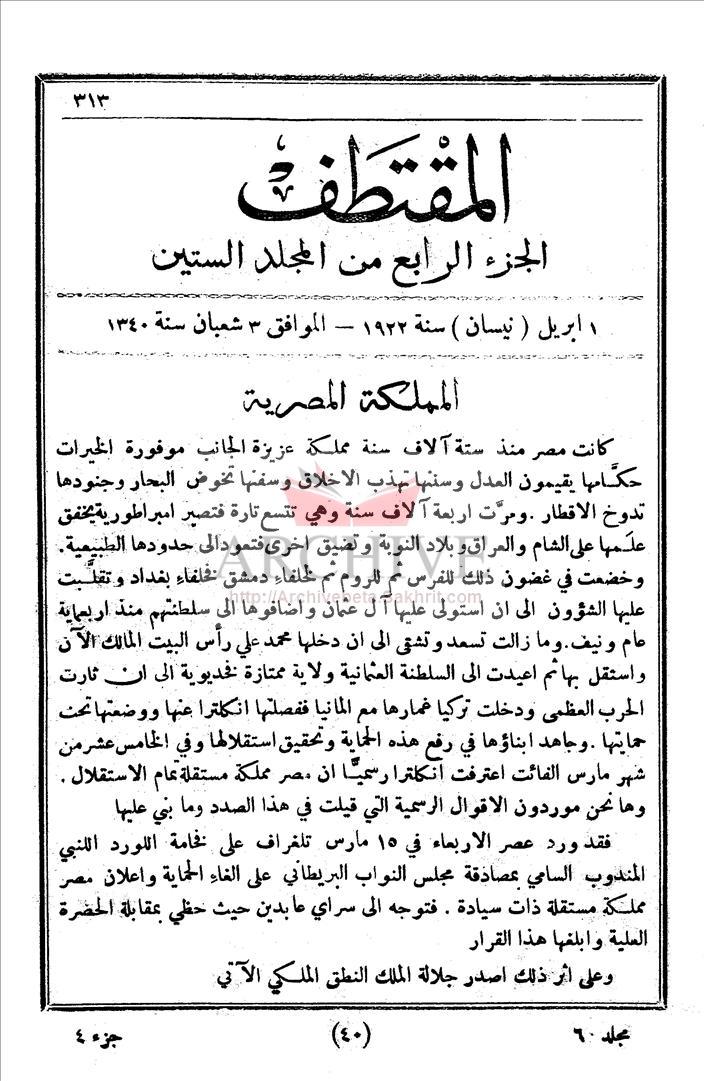 ٣١٣
المقتطف
الجزء الرابع من المجلد الستين
١ ابريل ( نيسان ) سنة ١٩٢٢ — الموافق ٣ شعبان سنة ١٣٤٠
المملكة المصرية
كانت مصر منذ ستة آلاف سنة مملكة عزيزة الجانب موفورة الخيرات
حكَّامها يقيمون العدل وسننها تهذب الاخلاق وسفنها تخوض البحار وجنودها
تدوخ الاقطار . ومرَّت اربعة آلاف سنة وهي تتسع تارة فتصير امبراطورية يخفق
علمها على الشام والعراق وبلاد النوبة وتضيق اخرى فتعود الى حدودها الطبيعية .
وخضعت في غضون ذلك للفرس ثم للروم ثم لخلفاء دمشق فخلفاء بغداد وتقلَّبت
عليها الشؤون الى ان استولى عليها آل عثمان واضافوها الى سلطنتهم منذ اربعماية
عام ونيف . وما زالت تسعد وتشقى الى ان دخلها محمد علي رأس البيت المالك الآن
واستقل بها ثم اعيدت الى السلطنة العثمانية ولاية ممتازة فخديوية الى ان ثارت
الحرب العظمى ودخلت تركيا غمارها مع المانيا ففصلتها انكلترا عنها ووضعتها تحت
حمايتها . وجاهد ابناؤها في رفع هذه الحماية وتحقيق استقلالها وفي الخامس عشر من
شهر مارس الفائت اعترفت انكلترا رسميًّا ان مصر مملكة مستقلة تمام الاستقلال .
وها نحن موردون الاقوال الرسمية التي قيلت في هذا الصدد وما بني عليها
فقد ورد عصر الاربعاء في ١٥ مارس تلغراف على فخامة اللورد اللنبي
المندوب السامي بمصادقة مجلس النواب البريطاني على الغاء الحماية واعلان مصر
مملكة مستقلة ذات سيادة . فتوجه الى سراي عابدين حيث حظي بمقابلة الحضرة
العلية وابلغها هذا القرار
وعلى اثر ذلك اصدر جلالة الملك النطق الملكي الآتي
مجلد ٦٠ (٤٠) جزء ٤
ARCHIVE
http://Archivebeta.Sakhrit.com